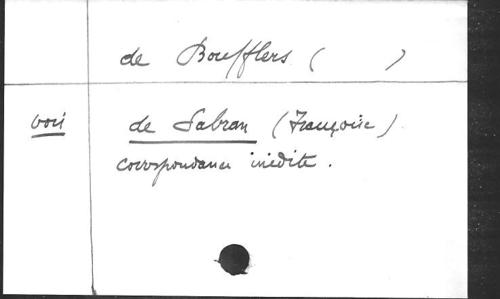 de Boufflers (      )
voir de Sabran (Françoise)
correspondance inédite.